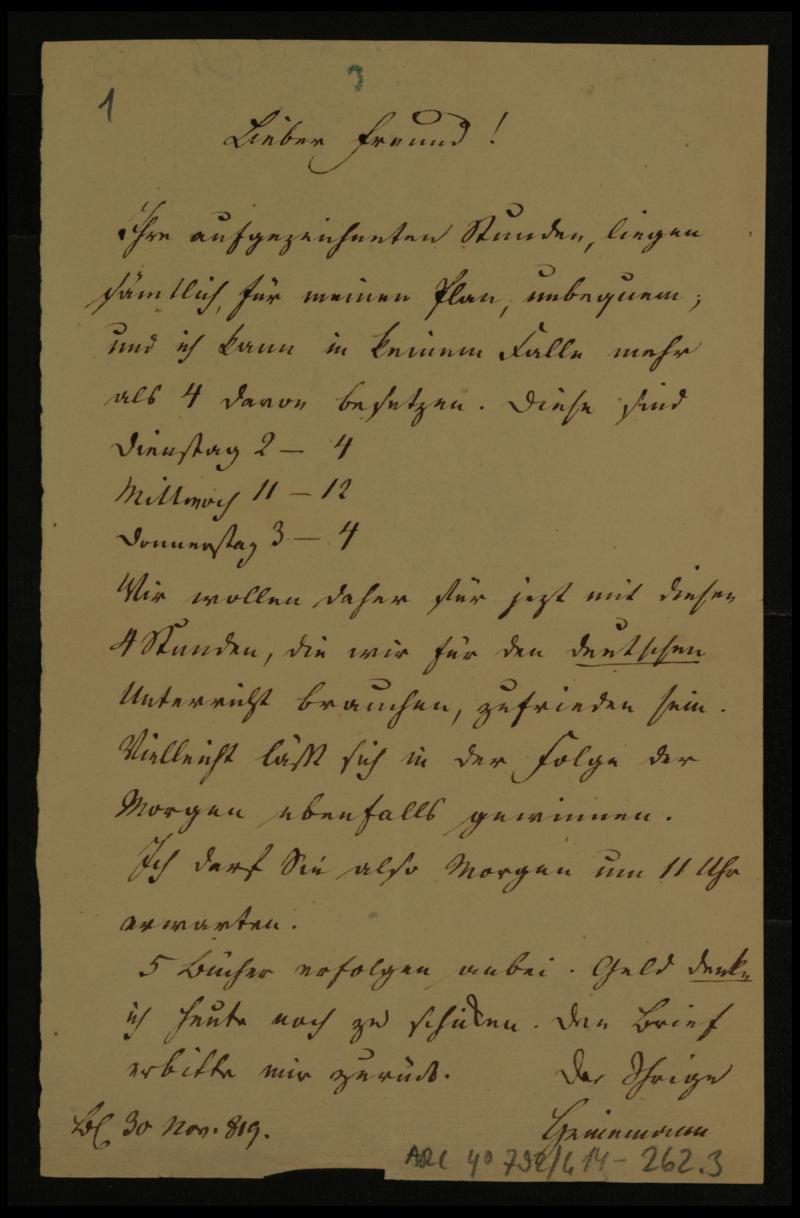 1
3
Lieber Freund!
Ihre aufgezeichneten Stunden, liegen
sämtlich, für meinen Plan, unbequem;
und ich kann in keinem Falle mehr
als 4 davon besetzen. Diese sind
Dienstag 2 — 4
Mittwoch 11 — 12
Donnerstag 3 — 4
Wir wollen daher für jezt mit diesen
4 Stunden, die wir für den deutschen
Unterricht brauchen, zufrieden sein.
Vielleicht läßt sich in der Folge der
Morgen ebenfalls gewinnen.
Ich darf Sie also Morgen um 11 Uhr
erwarten.
5 Bücher erfolgen anbei. Geld denke
ich heute noch zu schicken. Den Brief
erbitte mir zurück. Der Ihrige
30 Nov. 819. Heinemann
ARC 4° 792/ 14 - 262.3